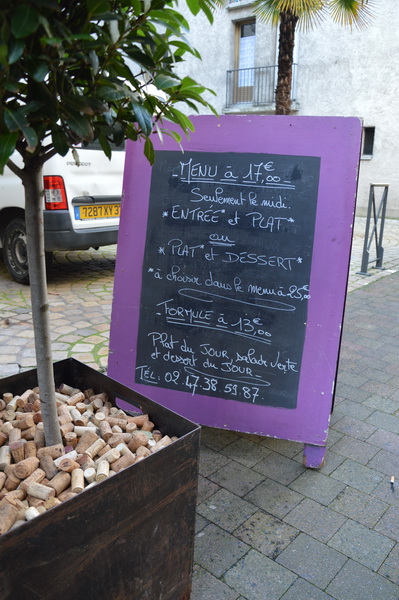 MENU à 17,00€
Seulement le midi
*ENTRÉE* et PLAT*
ou
*PLAT* et DESSERT*
*à choisir dans le menu à 25,00€
FORMULE à 13,00€
Plat du JOUR, salade verte
et dessert du JOUR
TÉL: 02.47.38 59.87
7287 XV 3